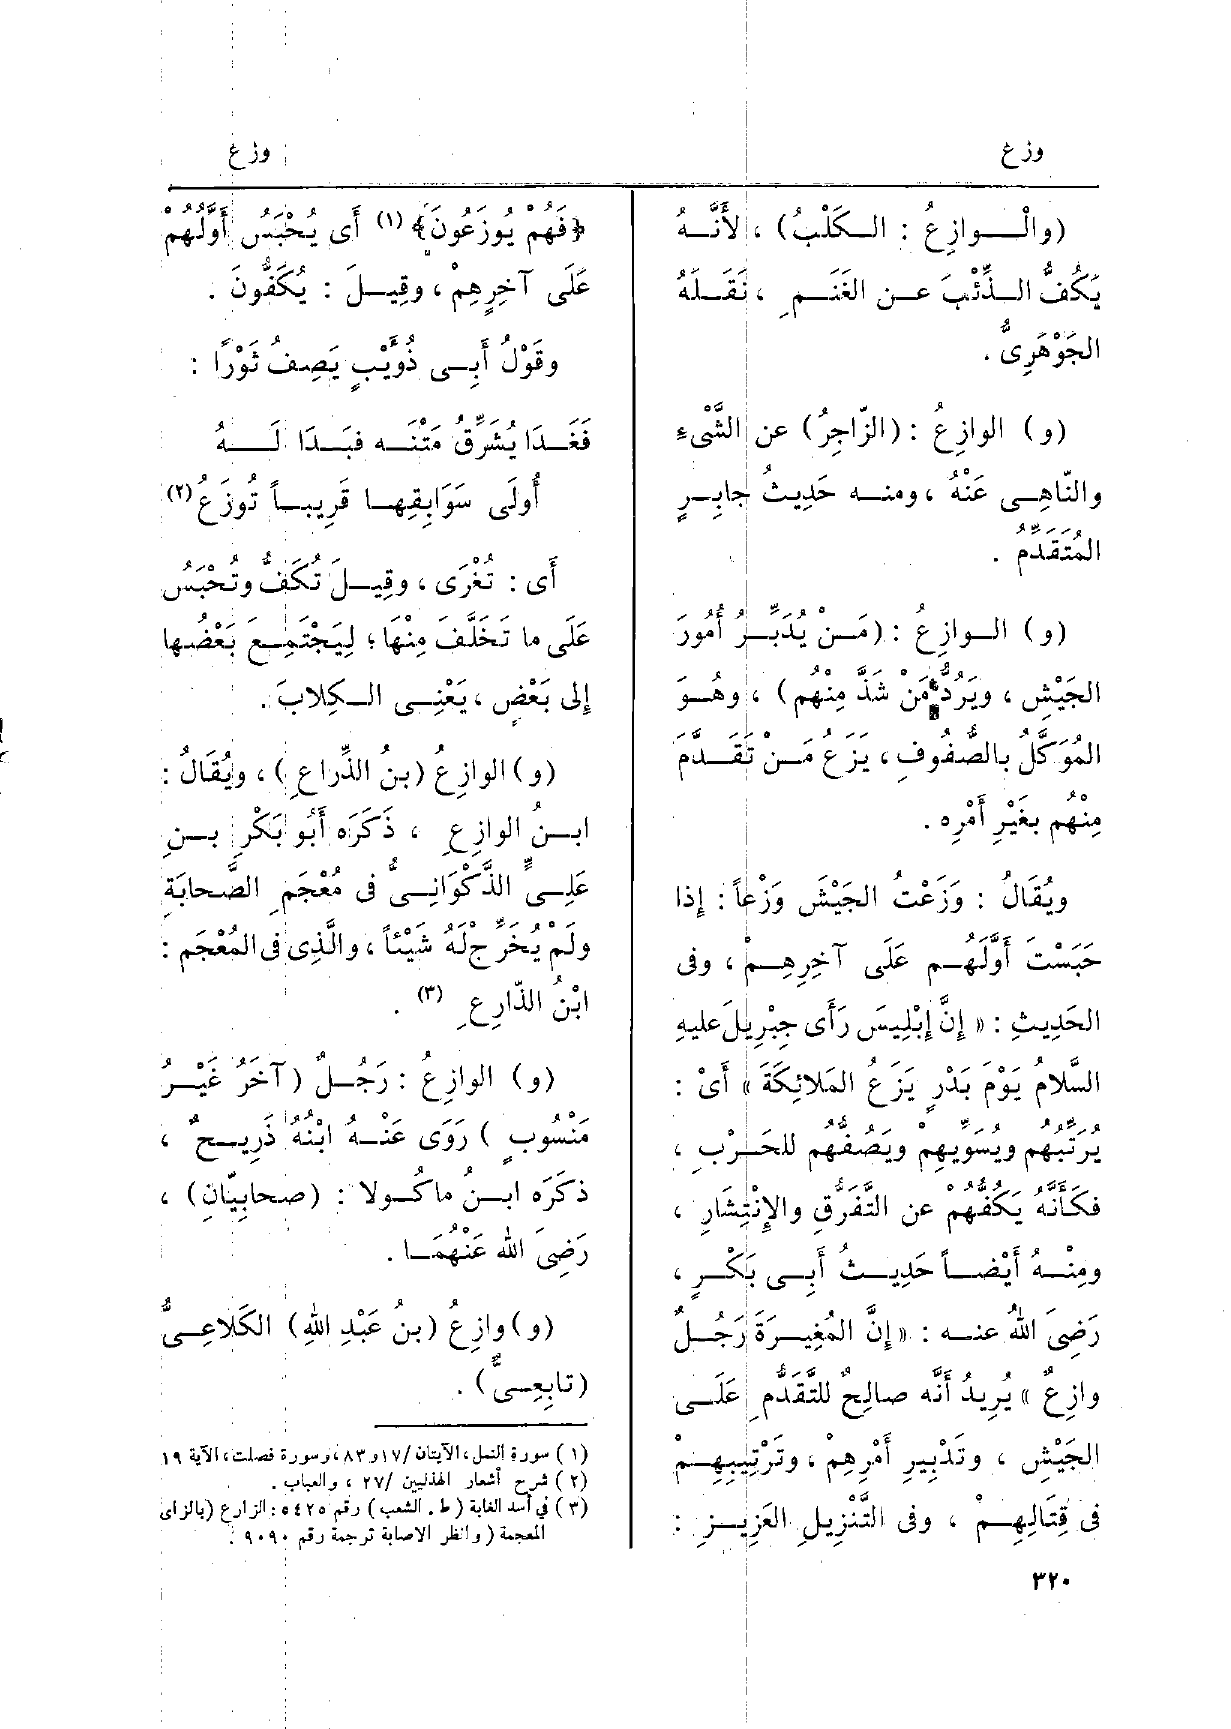 وزع
وزع
(والْوازِعُ : الكَلْبُ) ، لأَنَّهُ
يَكُفُّ الذِّئْبَ عن الغَنَمِ ، نَقَلَهُ
الجَوْهَرِىُّ .
(و) الوازِعُ : (الزّاجِرُ) عن الشَّىْءِ
والنّاهِى عَنْهُ ، ومنه حَدِيثُ جابِرٍ
المُتَقَدِّمُ .
(و) الوازِعُ : (مَنْ يُدَبِّرُ أُمُورَ
الجَيْشِ ، ويَرُدُّ مَنْ شَذَّ مِنْهُم) ، وهُوَ
المُوَكَّلُ بالصُّفُوفِ ، يَزَعُ مَنْ تَقَدَّمَ
مِنْهُم بغَيْرِ أَمْرِه .
ويُقَالُ : وَزَعْتُ الجَيْشَ وَزْعاً : إِذا
حَبَسْتَ أَوَّلَهُم عَلَى آخِرِهِمْ ، وفى
الحَدِيثِ : « إِنَّ إِبْلِيسَ رَأَى جِبْرِيلَ عليهِ
السَّلامُ يَوْمَ بَدْرٍ يَزَعُ المَلائِكَةَ » أَىْ :
يُرَتِّبُهُم ويُسَوِّيهِمْ ويَصُفُّهُم للحَرْبِ ،
فكَأَنَّهُ يَكُفُّهُمْ عن التَّفَرُّقِ والإِنْتِشَارِ ،
ومِنْهُ أَيْضاً حَدِيثُ أَبِى بَكْرٍ ،
رَضِىَ اللهُ عنه : « إِنَّ المُغِيرَةَ رَجُلٌ
وازِعٌ » يُرِيدُ أَنَّه صالِحٌ للتَّقَدُّمِ عَلَى
الجَيْشِ ، وتَدْبِيرِ أَمْرِهِمْ ، وتَرْتِيبِهِمْ
فى قِتَالِهِمْ ، وفى التَّنْزِيلِ العَزِيزِ :
﴿فَهُمْ يُوزَعُونَ﴾ (١) أَى يُحْبَسُ أَوَّلُهُمْ
عَلَى آخِرِهِمْ ، وقِيلَ : يُكَفُّونَ .
وقَوْلُ أَبِى ذُؤَيْبٍ يَصِفُ ثَوْرًا :
فَغَدَا يُشَرِّقُ مَتْنَه فبَدَا لَهُ
أُولَى سَوَابِقِها قَرِيباً تُوزَعُ (٢)
أَى : تُغْرَى ، وقِيلَ تُكَفُّ وتُحْبَسُ
عَلَى ما تَخَلَّفَ مِنْهَا ؛ لِيَجْتَمِعَ بَعْضُها
إِلى بَعْضٍ ، يَعْنِى الكِلابَ .
(و) الوازِعُ (بنُ الذِّراعِ) ، ويُقَالُ :
ابنُ الوازِعِ ، ذَكَرَه أَبُو بَكْرِ بنِ
عَلِىٍّ الذَّكْوَانِىُّ فى مُعْجَمِ الصَّحابَةِ
ولَمْ يُخَرِّجْ لَهُ شَيْئاً ، والَّذِى فى المُعْجَمِ :
ابْنُ الذّارِعِ (٣) .
(و) الوازِعُ : رَجُلٌ (آخَرُ غَيْرُ
مَنْسُوبٍ) رَوَى عَنْهُ ابْنُهُ ذَرِيحٌ ،
ذكَرَه ابنُ ماكُولا : (صحابِيّانِ) ،
رَضِىَ اللهُ عَنْهُمَا .
(و) وازِعُ (بنُ عَبْدِ اللهِ) الكَلاعِىُّ
(تابِعِىٌّ) .
(١) سورة النمل ، الآيتان /١٧ و ٨٣ ، وسورة فصلت ، الآية ١٩
(٢) شرح أشعار الهذليين /٢٧ ، والعباب .
(٣) فى أسد الغابة (ط . الشعب) رقم ٥٤٢٥ : الزارع (بالزاى
المعجمة) وانظر الاصابة ترجمة رقم ٩٠٩٠ .
٣٢٠